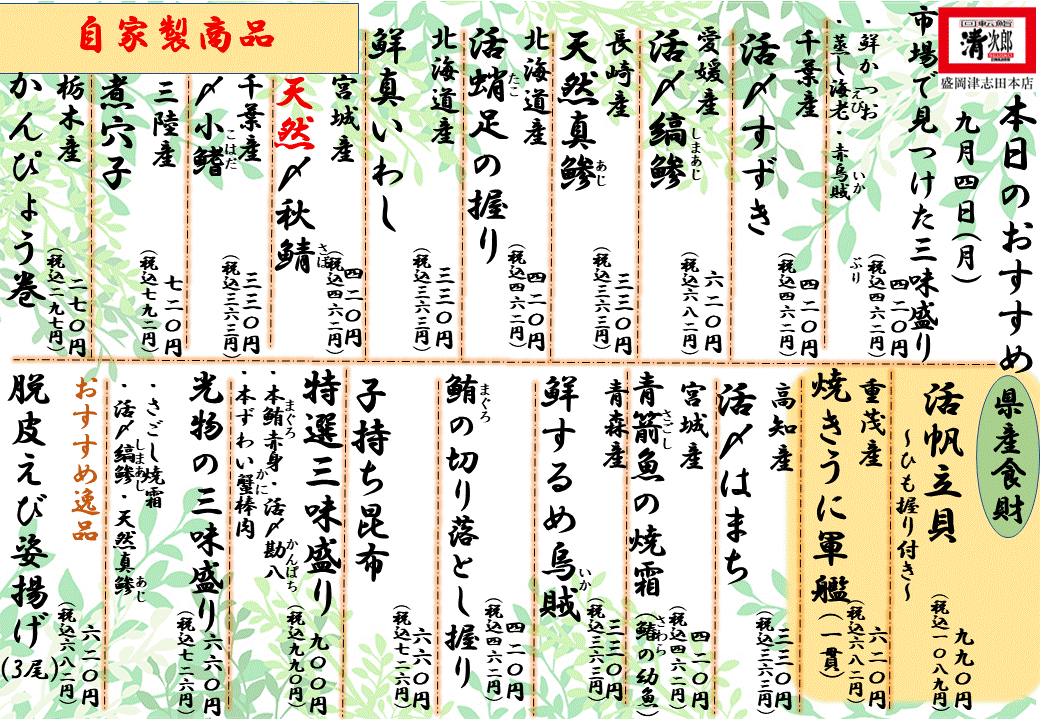 回転鮨
清次郎
盛岡津志田本店
本日のおすすめ
九月四日(月)
市場で見つけた三味盛り
・鮮かつお
・蒸し海老・赤烏賊
えび
いか
ぶり
四二〇円
(税込四六二円)
千葉産
活〆すずき
四二〇円
(税込四六二円)
愛媛産
活〆縞鯵
しまあじ
六二〇円
(税込六八二円)
長崎産
天然真鯵
あじ
三三〇円
(税込三六三円)
北海道産
活蛸足の握り
たこ
四二〇円
(税込四六二円)
北海道産
鮮真いわし
三三〇円
(税込三六三円)
宮城産
天然〆秋鯖
さば
四二〇円
(税込四六二円)
千葉産
〆小鰭
こはだ
三三〇円
(税込三六三円)
自家製商品
三陸産
煮穴子
七二〇円
(税込七九二円)
栃木産
かんぴょう巻
二七〇円
(税込二九七円)
県産食財
活帆立貝
〜ひも握り付き〜
九九〇円
(税込一〇八九円)
重茂産
焼きうに軍艦
(一貫)
六二〇円
(税込六八二円)
高知産
活〆はまち
三三〇円
(税込三六三円)
宮城産
青箭魚の焼霜
さごし
(鰆の幼魚)
さわら
四二〇円
(税込四六二円)
青森産
鮮するめ烏賊
いか
三三〇円
(税込三六三円)
鮪の切り落とし握り
まぐろ
四二〇円
(税込四六二円)
子持ち昆布
六六〇円
(税込七二六円)
特選三味盛り
・本鮪赤身・活〆勘八
まぐろ
かんぱち
・本ずわい蟹棒肉
かに
九〇〇円
(税込九九〇円)
光物の三味盛り
・さごし焼霜
・活〆縞鯵・天然真鯵
しまあじ
あじ
六六〇円
(税込七二六円)
おすすめ逸品
脱皮えび姿揚げ
(3尾)
六二〇円
(税込六八二円)